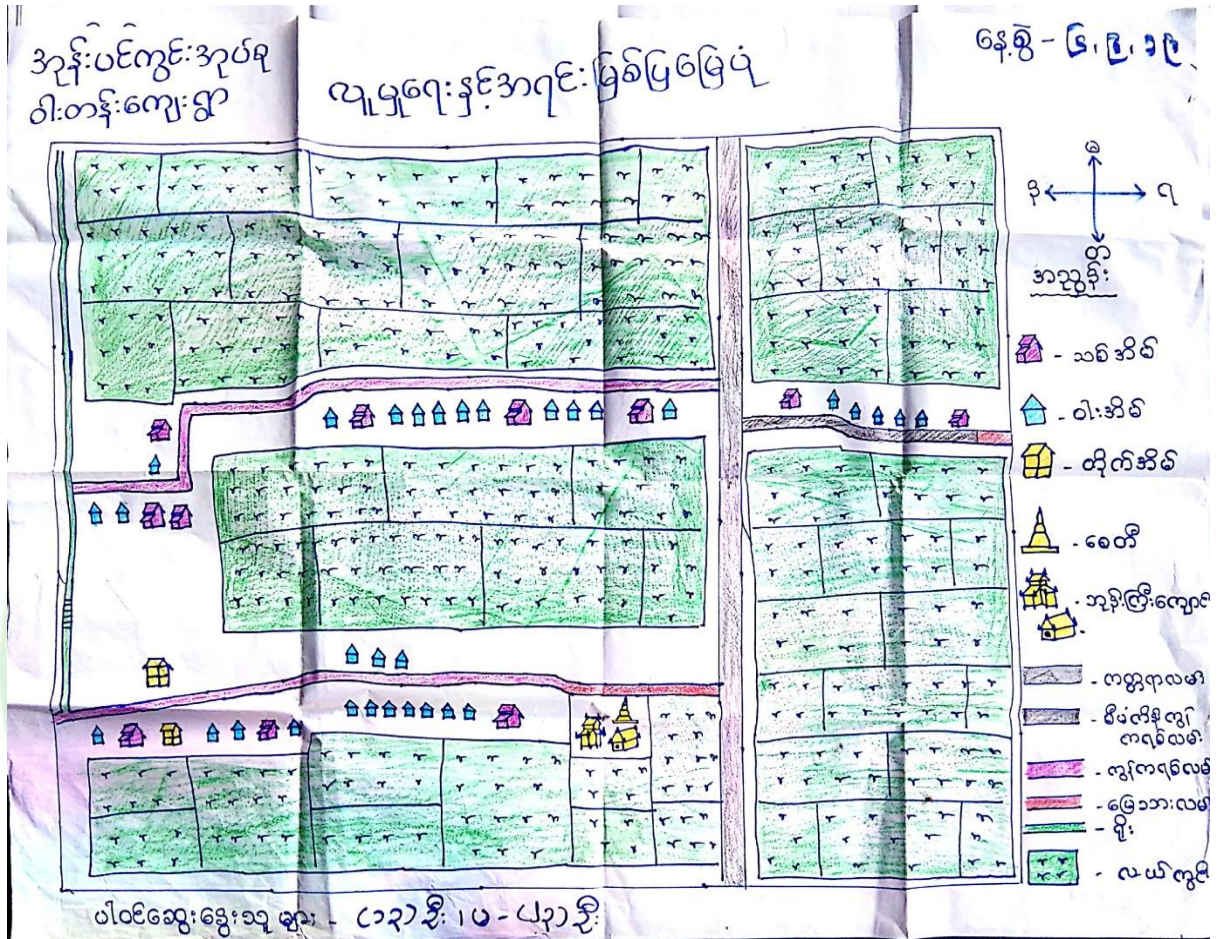 အုန်းပင်ကွင်းအုပ်စု
ဝါးတန်းကျေးရွာ
လူမှုရေးနှင့်အရင်းမြစ်ပြမြေပုံ
နေ့စွဲ - ၆၊ ၉၊ ၁၉
မ
ဒ
ရ
တ
အညွှန်း
- သစ်အိမ်
- ဝါးအိမ်
- တိုက်အိမ်
- စေတီ
- ဘုန်းကြီးကျောင်း
- ကတ္တရာလမ်း
- စီမံကိန်းကွန်
ကရစ်လမ်း
- ကွန်ကရစ်လမ်း
- မြေသားလမ်း
- ရိုး
- လယ်ကွင်း
ပါဝင်ဆွေးနွေးသူများ -